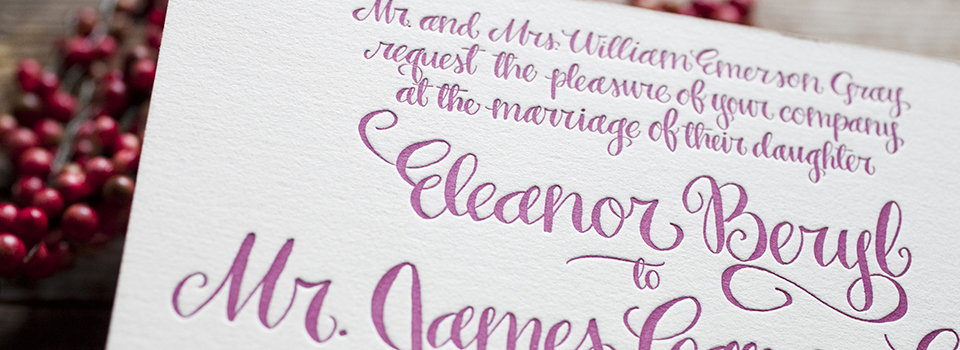 Mr. and Mrs. William Emerson Gray
request the pleasure of your company
at the marriage of their daughter
Eleanor Beryl
to
Mr. James